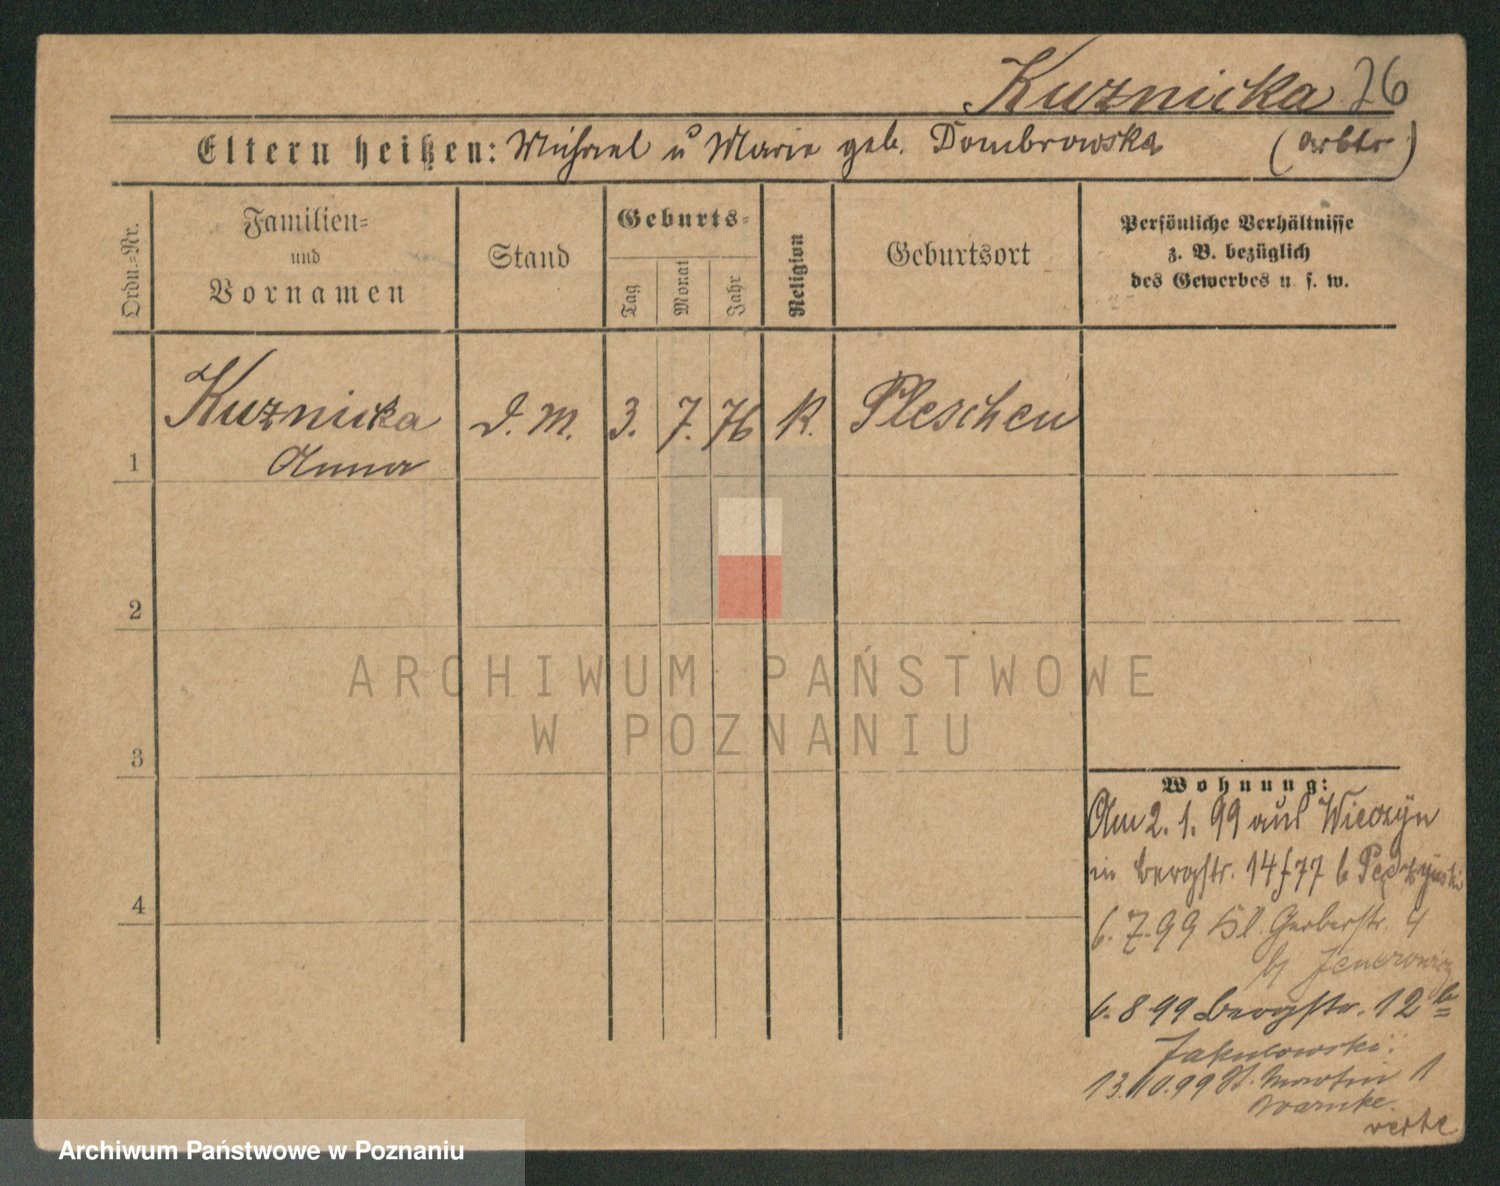 Kuznicka 76
Eltern heißen: Michael u Marie geb. Dombrowska (Arbtr)
Ordn.-Nr.
Familien- und Vornamen
Stand
Geburts-
Tag
Monat
Jahr
Religion
Geburtsort
Persönliche Verhältnisse
z. B. bezüglich
des Gewerbes u. s. w.
1 Kuznicka D. M. 3. 7. 76 K. Pleschen
Anna
2
3
4
Wohnung:
Am 2. 1. 99 aus Wieczyn
in Bergstr. 14 f 77 b
6. 7. 99 Kl. Gerberstr. 4
b
6. 8 99 Bergstr. 12 b
Jakubowski.
13. 10. 99 St. Martin 1
Warnke.
verte
ARCHIWUM PAŃSTWOWE
W POZNANIU
Archiwum Państwowe w Poznaniu